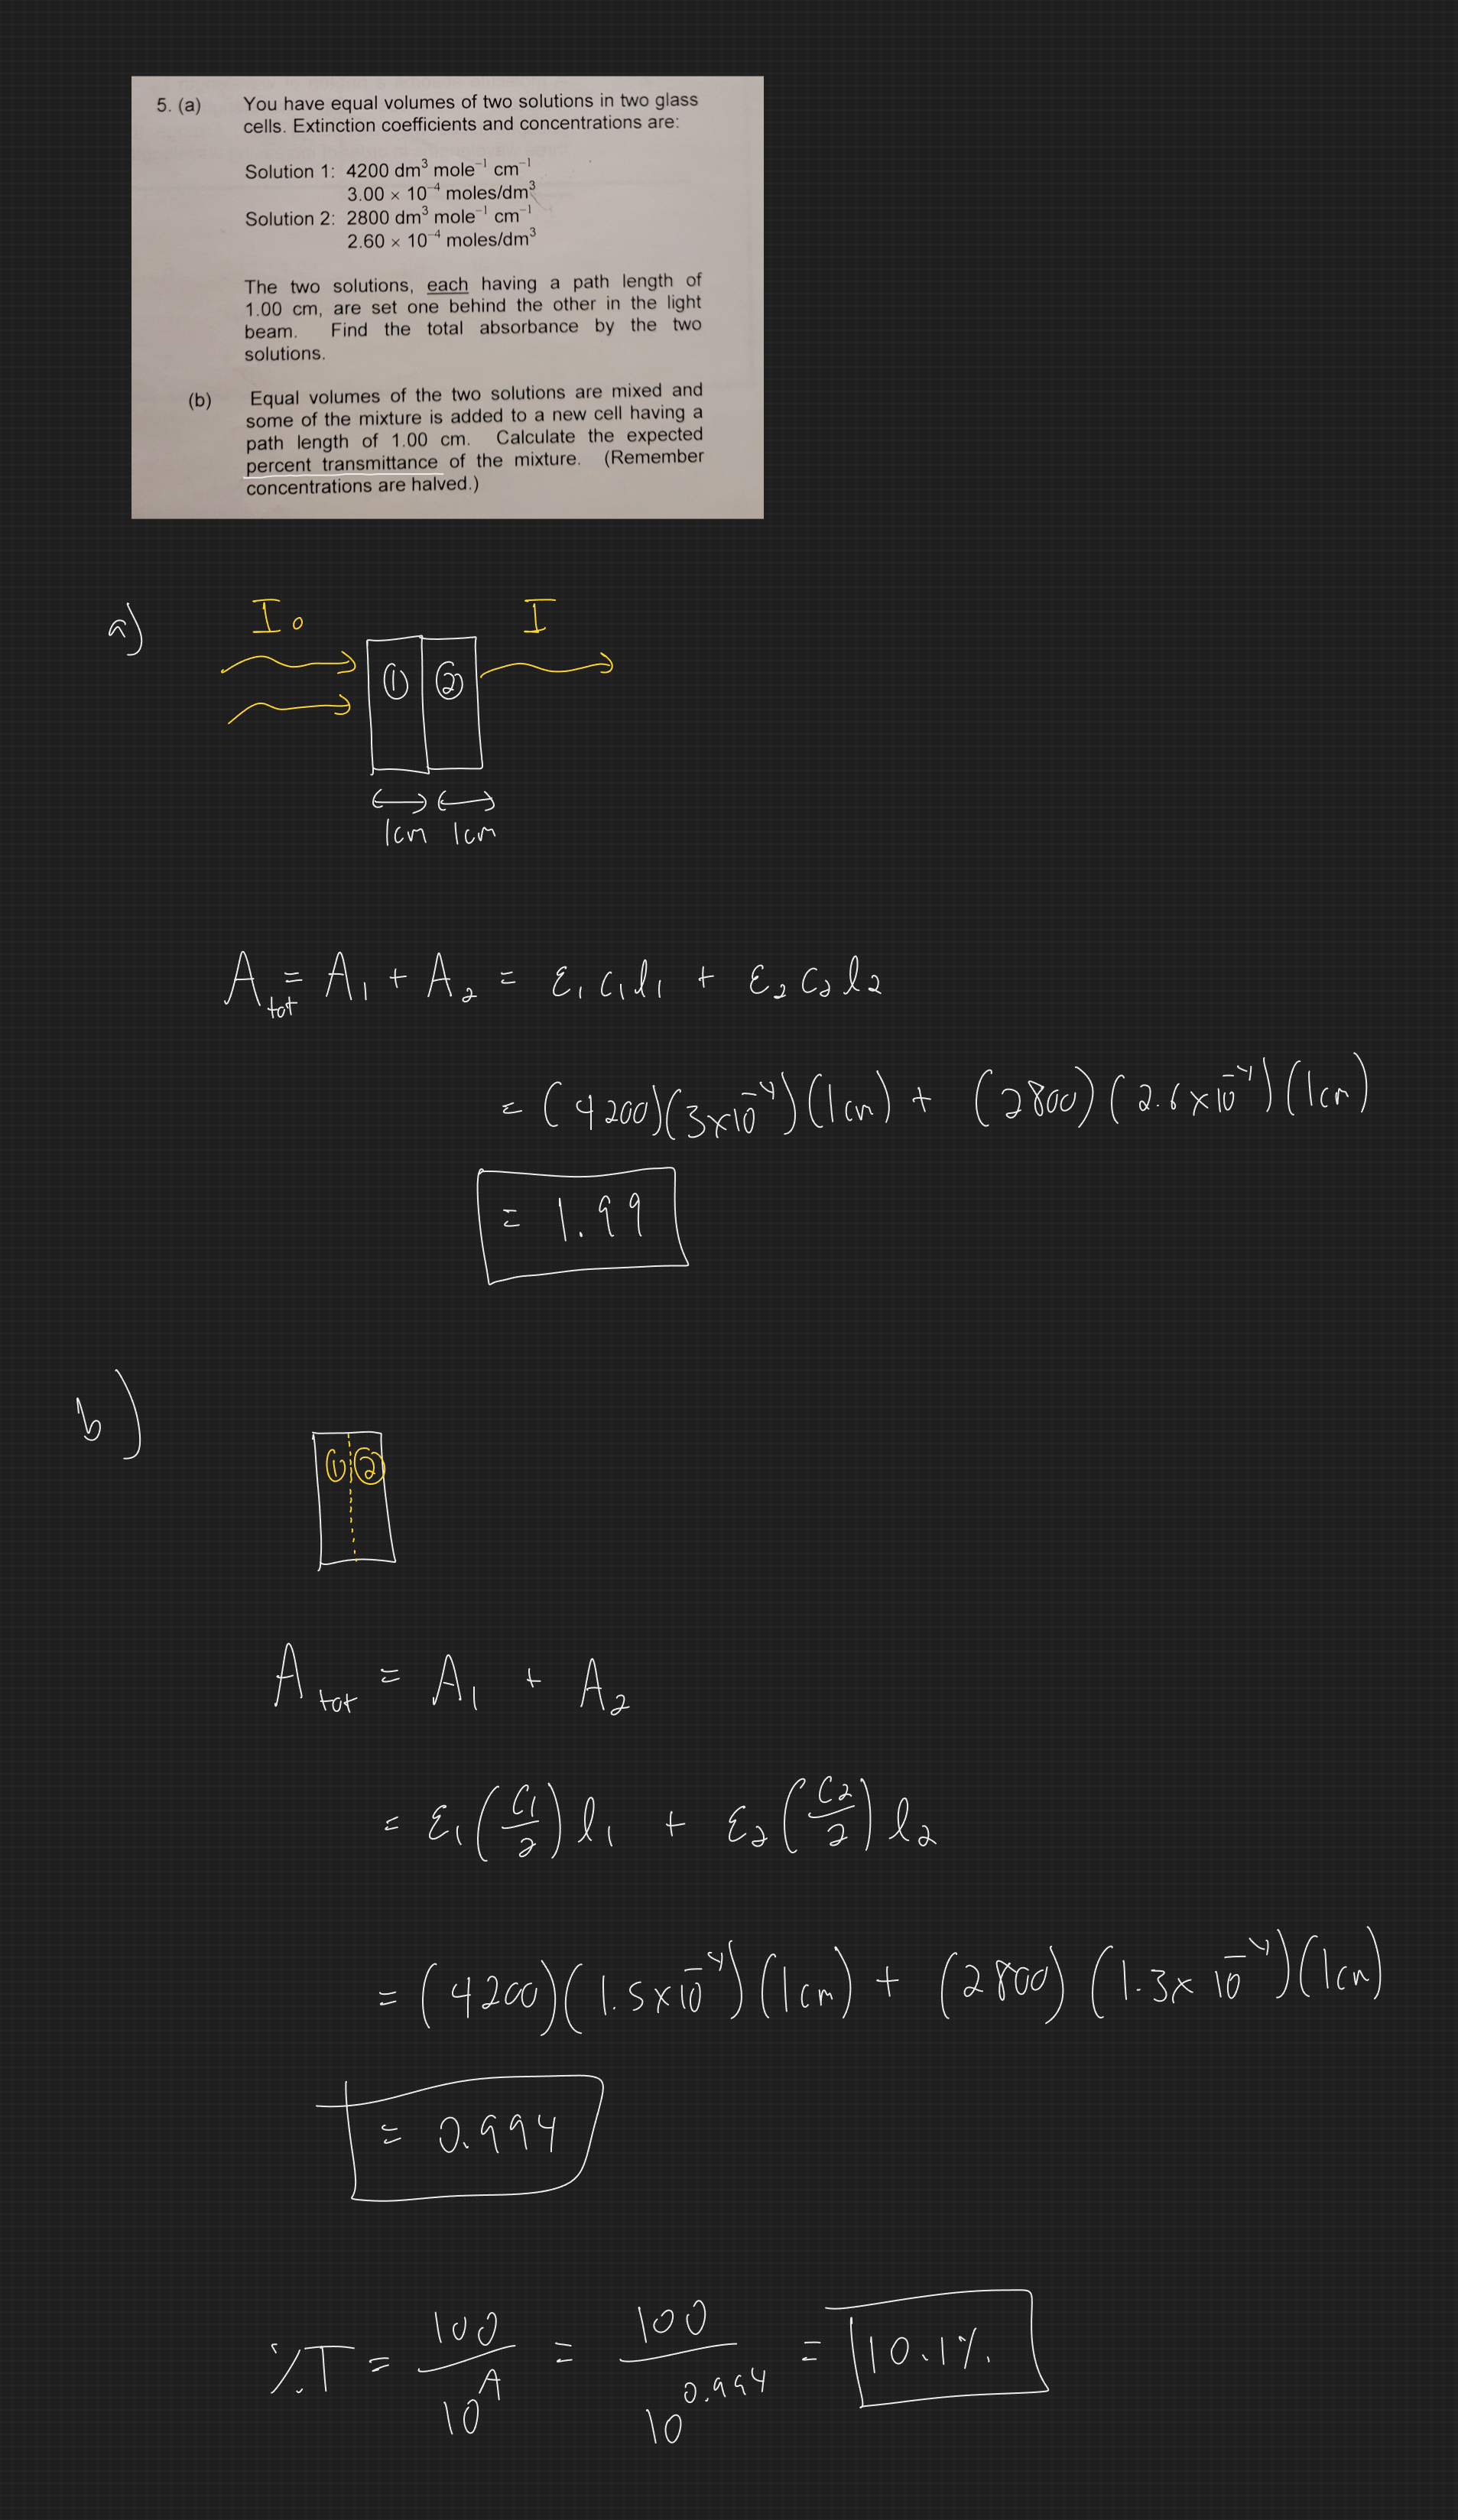 5. (a) You have equal volumes of two solutions in two glass
cells. Extinction coefficients and concentrations are:
Solution 1: 4200 dm³ mole⁻¹ cm⁻¹
3.00 × 10⁻⁴ moles/dm³
Solution 2: 2800 dm³ mole⁻¹ cm⁻¹
2.60 × 10⁻⁴ moles/dm³
The two solutions, each having a path length of
1.00 cm, are set one behind the other in the light
beam. Find the total absorbance by the two
solutions.
(b) Equal volumes of the two solutions are mixed and
some of the mixture is added to a new cell having a
path length of 1.00 cm. Calculate the expected
percent transmittance of the mixture. (Remember
concentrations are halved.)
a) I₀ I
① ②
1cm 1cm
A_tot = A₁ + A₂ = ε₁c₁l₁ + ε₂c₂l₂
= (4200)(3×10⁻⁴)(1cm) + (2800)(2.6×10⁻⁴)(1cm)
= 1.99
b)
① ②
A_tot = A₁ + A₂
= ε₁(c₁/2)l₁ + ε₂(c₂/2)l₂
= (4200)(1.5×10⁻⁴)(1cm) + (2800)(1.3×10⁻⁴)(1cm)
= 0.994
%T = 100/10^A = 100/10^0.994 = 10.1%